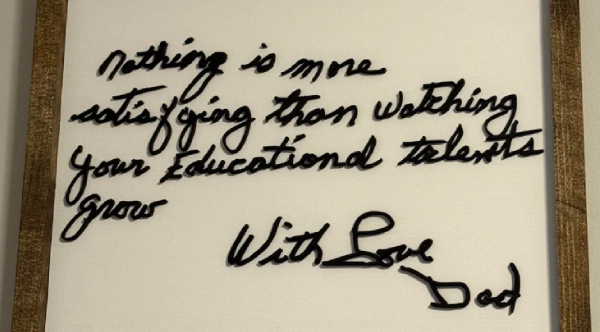 Nothing is more
satisfying than watching
your Educational talents
grow
With Love
Dad